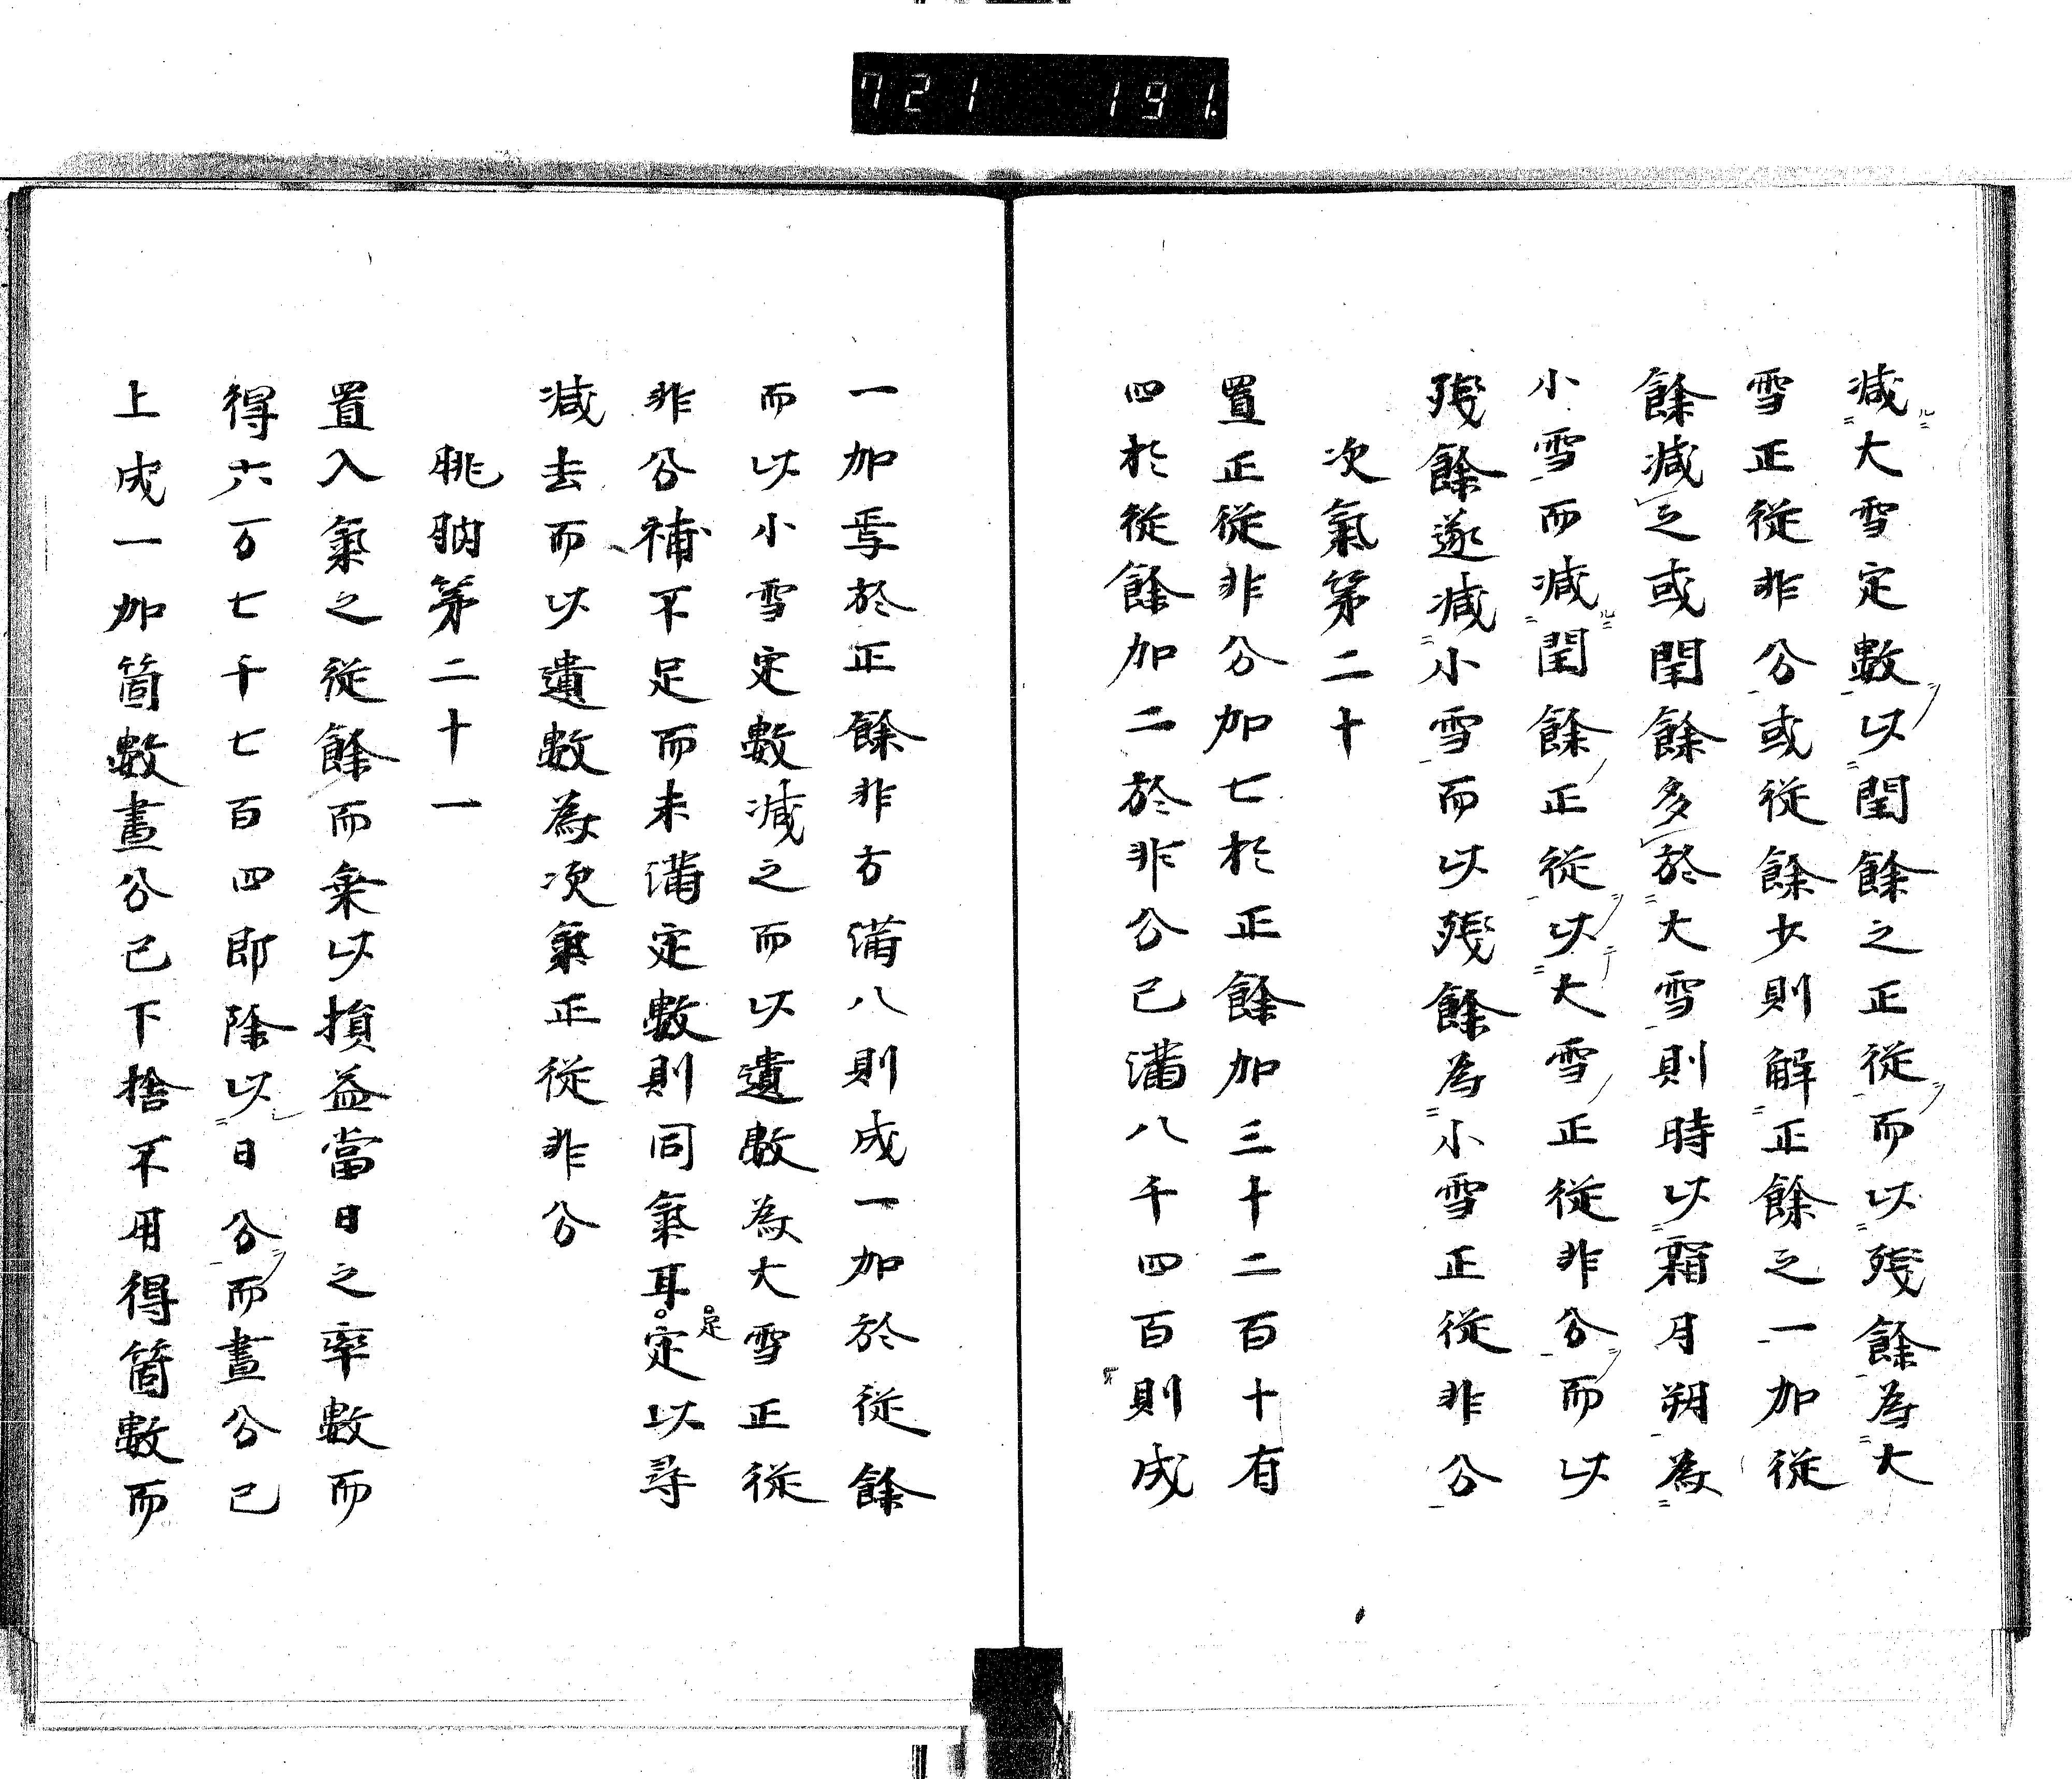 721 191
減大雪定數以閏餘之正從而以殘餘為大
雪正從非分或從餘少則解正餘之一加從
餘減之或閏餘多於大雪則時以霜月朔為
小雪而減閏餘正從以大雪正從非分而以
殘餘遂減小雪而以殘餘為小雪正從非分
次氣第二十
置正從非分加七於正餘加三十二百十有
四於從餘加二於非分已滿八千四百則成
一加焉於正餘非方滿八則成一加於從餘
而以小雪定數減之而以遺數為大雪正從
非分補不足而未滿定數則同氣耳定以尋
定
減去而以遺數為次氣正從非分
朓朒第二十一
置入氣之從餘而乗以損益當日之率數而
得六万七千七百四即除以日分而晝分已
上成一加箇數晝分已下捨不用得箇數而